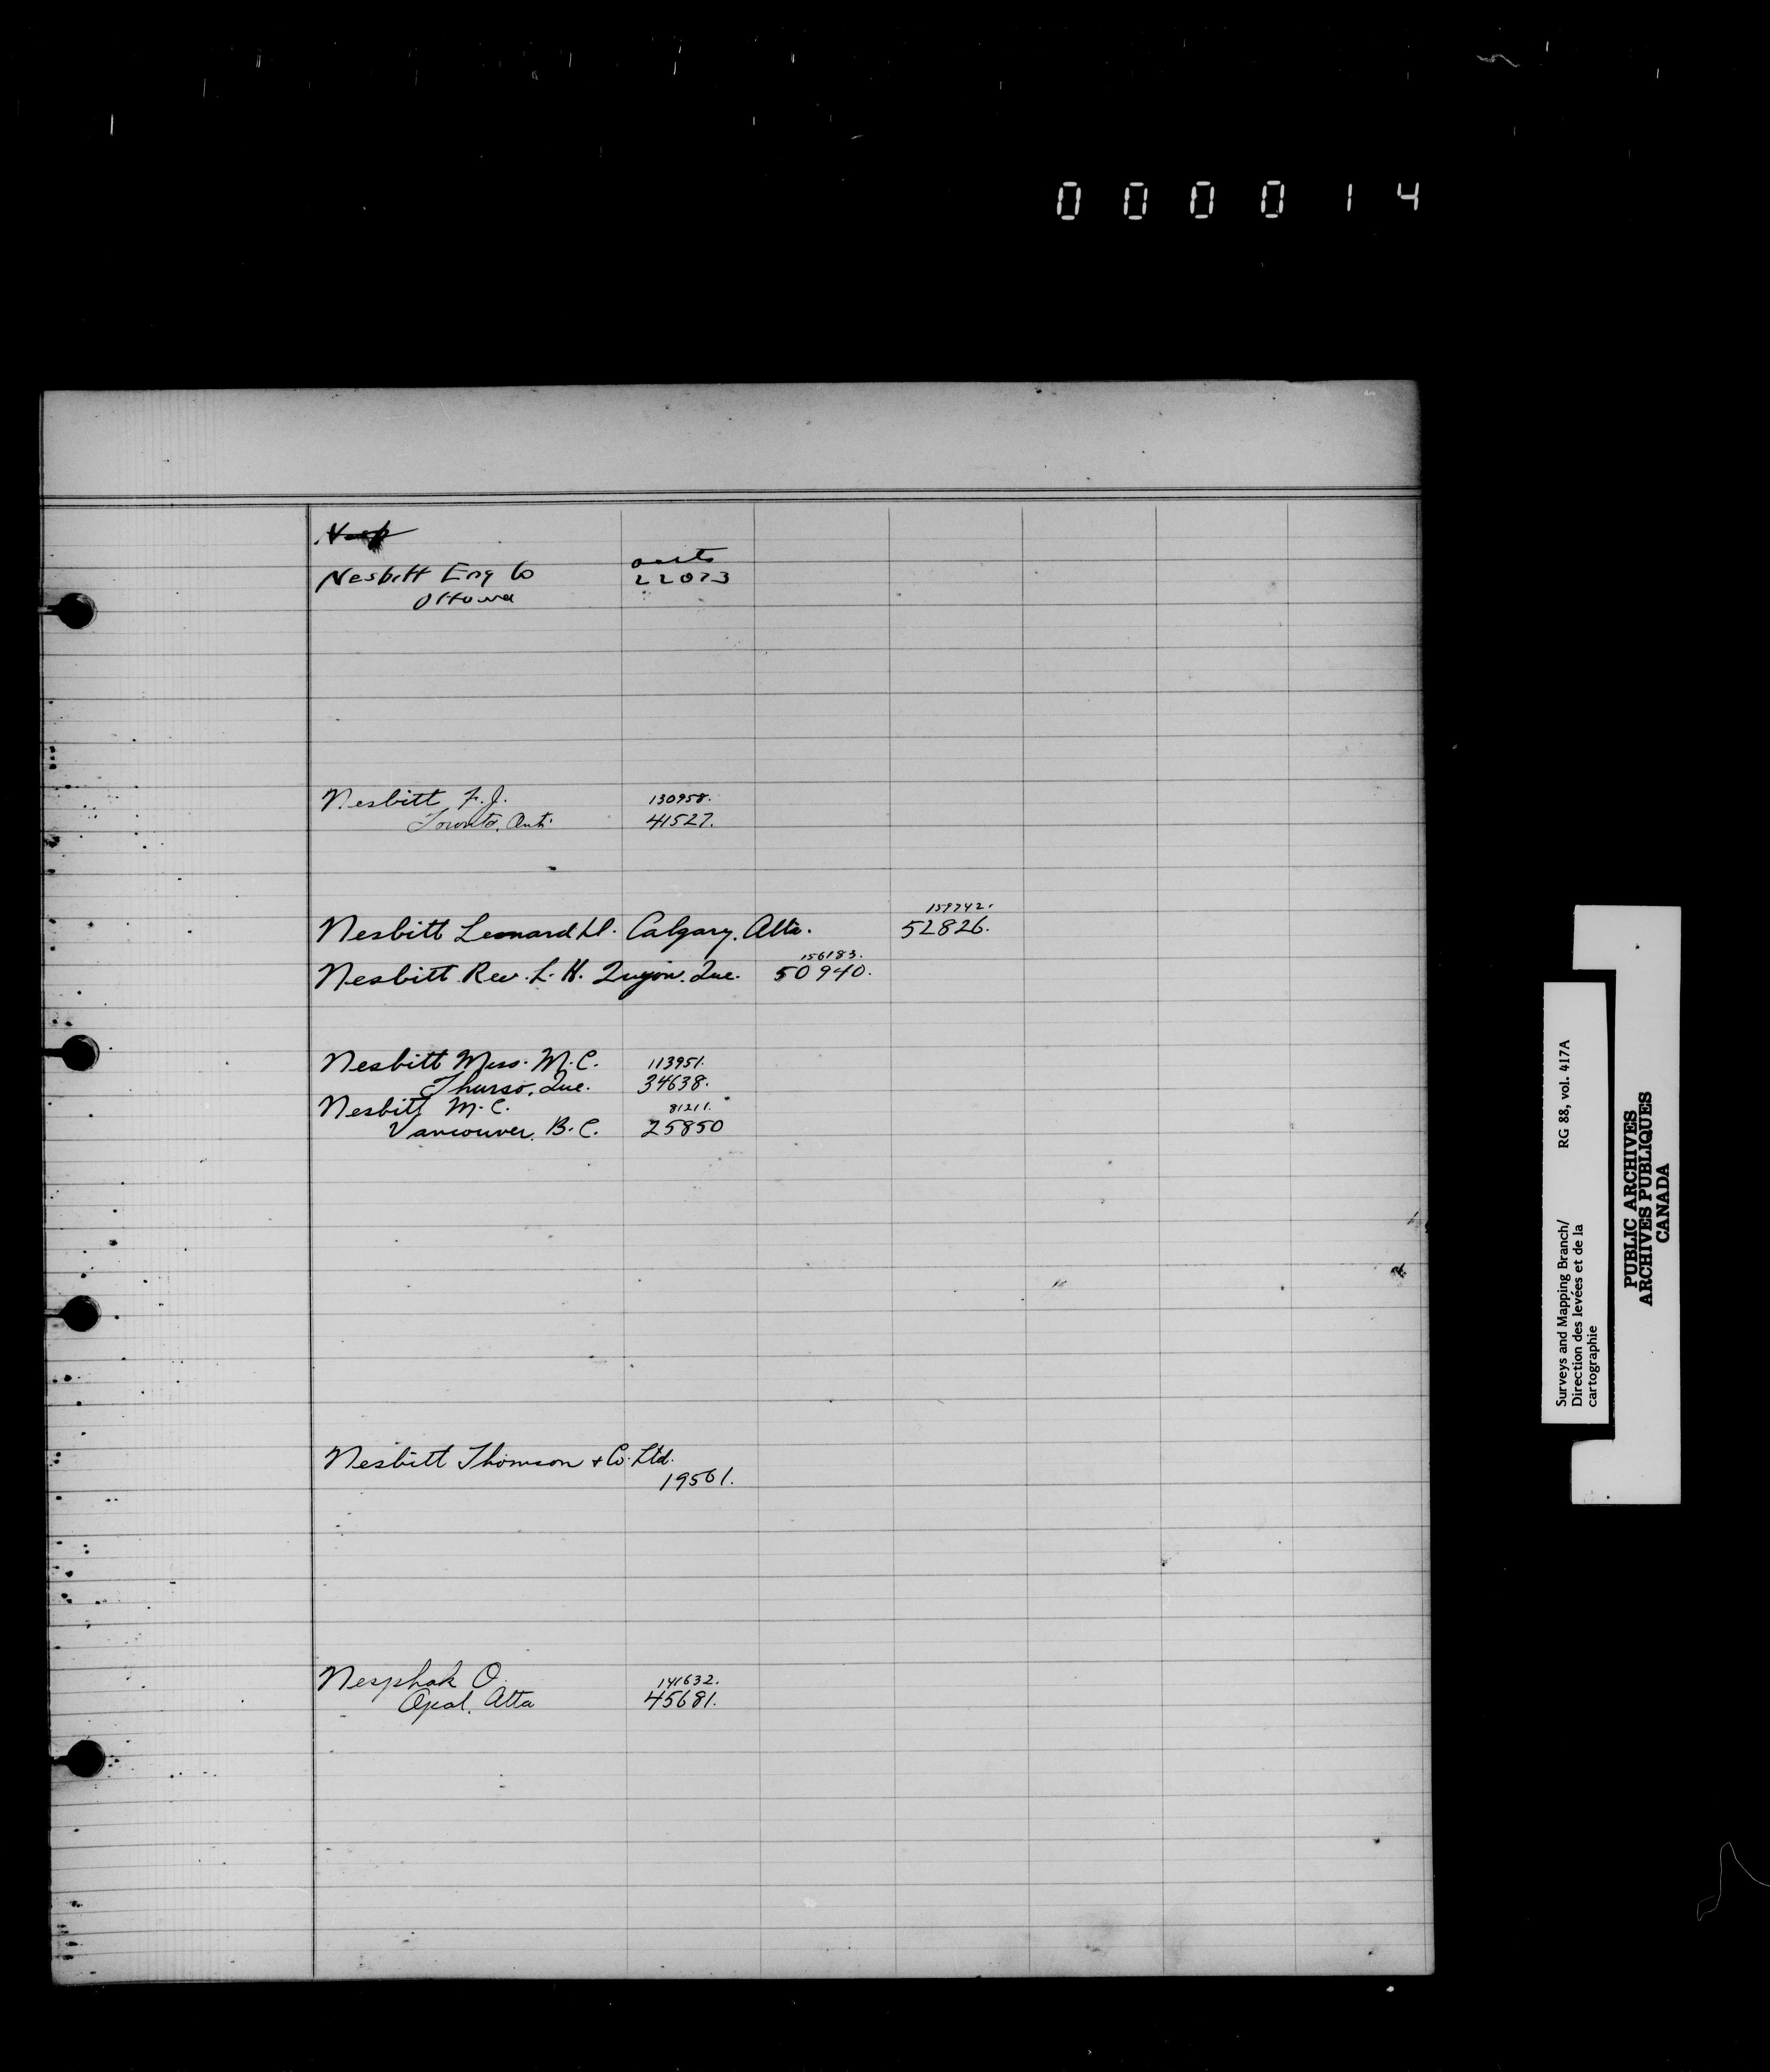 000014
Nesbitt Eng Co
22073
Ottawa
Nesbitt F.J.
130958.
Toronto, Ont.
41527.
159742.
Nesbitt Leonard D. Calgary, Alta.
52826.
156183.
Nesbitt Rev. L. H. Quyon, Que.
50940.
Nesbitt Miss. M.C.
113951.
Thurso, Que.
34638.
Nesbitt M.C.
81211.
Vancouver, B.C.
25850
Nesbitt Thomson & Co. Ltd.
19561.
Nesphak O.
141632.
Opal, Alta
45681.
Surveys and Mapping Branch/ RG 88, vol. 417A
Direction des levées et de la
cartographie
PUBLIC ARCHIVES
ARCHIVES PUBLIQUES
CANADA